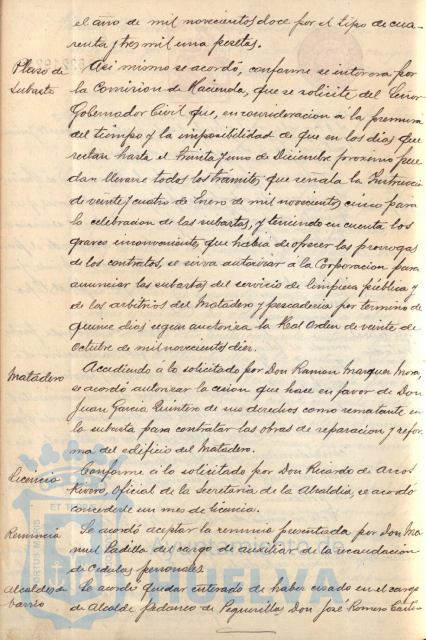 el año de mil novecientos doce por el tipo de cua-
renta y tres mil una pesetas.
Plazo de Subasta
Asi mismo se acordó, conforme se interesa por
la Comision de Hacienda, que se solicite del Señor
Gobernador Civil que, en consideracion á la premura
del tiempo y la imposibilidad de que en los dias que
restan hasta el treinta y uno de Diciembre proximo pue-
dan llevarse todos los trámites que señala la Instruccion
de veinte y cuatro de Enero de mil novecientos cinco para
la celebracion de las subastas, y teniendo en cuenta los
graves inconvenientes que habia de ofrecer las prorrogas
de los contratos, se sirva autorizar á la Corporacion para
anunciar las subastas del servicio de limpieza pública y
de los arbitrios del Matadero y pescaderia por termino de
quince dias segun autoriza la Real Orden de veinte de
Octubre de mil novecientos diez.
Matadero
Accediendo á lo solicitado por Don Ramon Marquez Mora,
se acordó autorizar la cesion que hace en favor de Don
Juan Garcia Quintero de sus derechos como rematante en
la subasta para contratar las obras de reparacion y refor-
ma del edificio del Matadero.
Licencia
Conforme á lo solicitado por Don Ricardo de Arcos
Rivero, oficial de la Secretaria de la Alcaldia, se acordó
concederle un mes de licencia.
Renuncia
Se acordó aceptar la renuncia presentada por Don Ma-
nuel Padilla del cargo de auxiliar de la recaudacion
de Cedulas personales.
Alcaldes de barrio
Se acordó quedar enterado de haber cesado en el cargo
de Alcalde pedaneo de Peguerillas Don José Romero
HUELVA